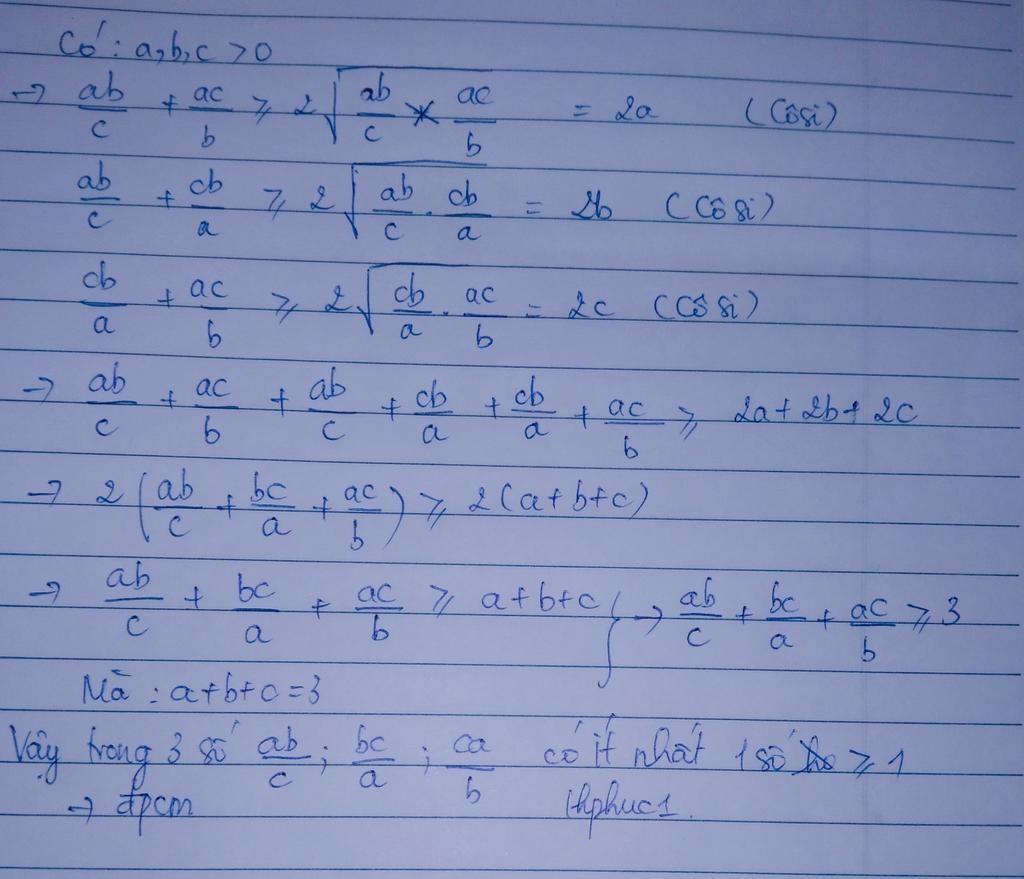 Có: a,b,c > 0
→ ab/c + ac/b ≥ 2√(ab/c * ac/b) = 2a (Côsi)
ab/c + cb/a ≥ 2√(ab/c . cb/a) = 2b (Côsi)
cb/a + ac/b ≥ 2√(cb/a . ac/b) = 2c (Côsi)
→ ab/c + ac/b + ab/c + cb/a + cb/a + ac/b ≥ 2a + 2b + 2c
→ 2(ab/c + bc/a + ac/b) ≥ 2(a+b+c)
→ ab/c + bc/a + ac/b ≥ a+b+c } → ab/c + bc/a + ac/b ≥ 3
Mà : a+b+c = 3
Vậy trong 3 số ab/c ; bc/a ; ca/b có ít nhất 1 số ≥ 1
→ đpcm lhphuc1.